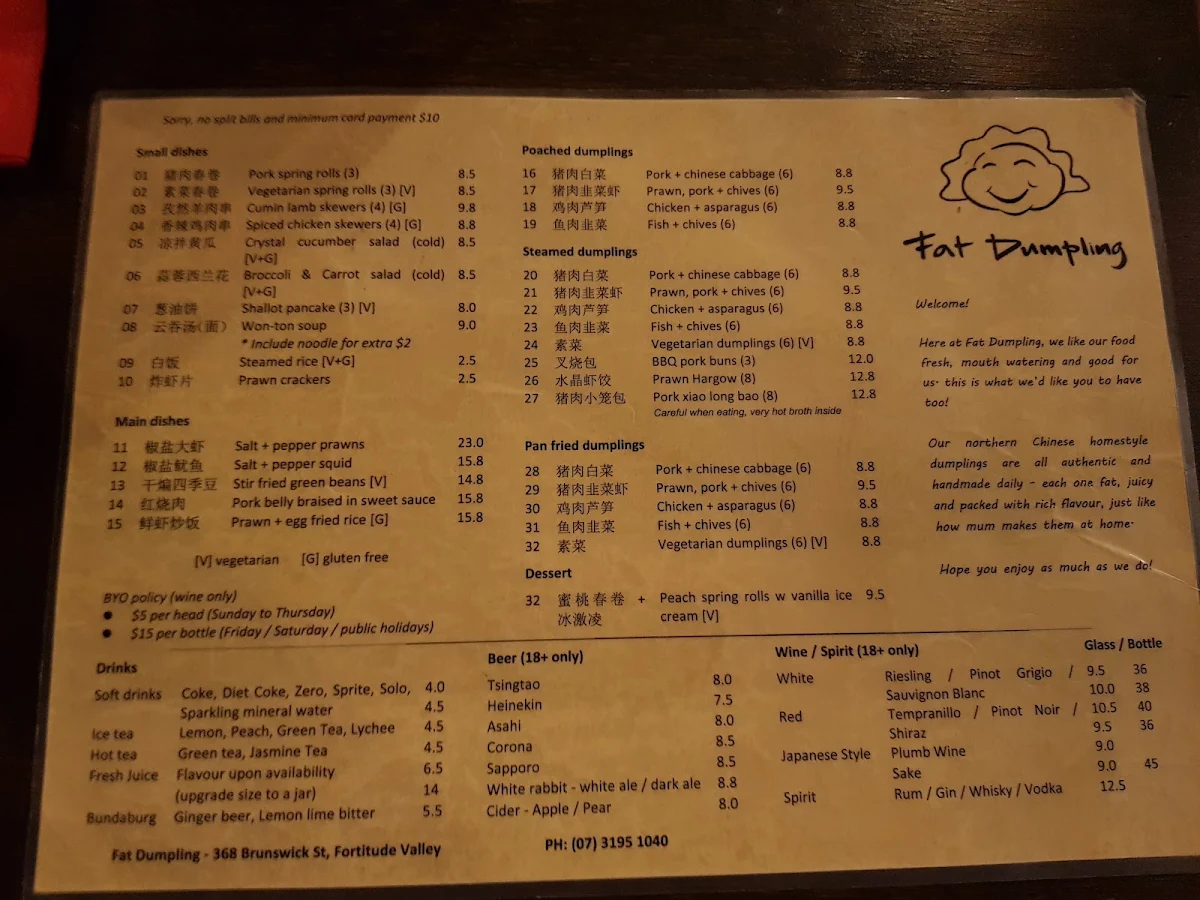 Sorry, no split bills and minimum card payment $10
Small dishes
01 猪肉春卷 Pork spring rolls (3) 8.5
02 素菜春卷 Vegetarian spring rolls (3) [V] 8.5
03 孜然羊肉串 Cumin lamb skewers (4) [G] 9.8
04 香辣鸡肉串 Spiced chicken skewers (4) [G] 8.8
05 凉拌黄瓜 Crystal cucumber salad (cold) 8.5
[V+G]
06 蒜蓉西兰花 Broccoli & Carrot salad (cold) 8.5
[V+G]
07 葱油饼 Shallot pancake (3) [V] 8.0
08 云吞汤(面) Won-ton soup 9.0
* Include noodle for extra $2
09 白饭 Steamed rice [V+G] 2.5
10 炸虾片 Prawn crackers 2.5
Main dishes
11 椒盐大虾 Salt + pepper prawns 23.0
12 椒盐鱿鱼 Salt + pepper squid 15.8
13 干煸四季豆 Stir fried green beans [V] 14.8
14 红烧肉 Pork belly braised in sweet sauce 15.8
15 鲜虾炒饭 Prawn + egg fried rice [G] 15.8
[V] vegetarian [G] gluten free
BYO policy (wine only)
● $5 per head (Sunday to Thursday)
● $15 per bottle (Friday / Saturday / public holidays)
Poached dumplings
16 猪肉白菜 Pork + chinese cabbage (6) 8.8
17 猪肉韭菜虾 Prawn, pork + chives (6) 9.5
18 鸡肉芦笋 Chicken + asparagus (6) 8.8
19 鱼肉韭菜 Fish + chives (6) 8.8
Steamed dumplings
20 猪肉白菜 Pork + chinese cabbage (6) 8.8
21 猪肉韭菜虾 Prawn, pork + chives (6) 9.5
22 鸡肉芦笋 Chicken + asparagus (6) 8.8
23 鱼肉韭菜 Fish + chives (6) 8.8
24 素菜 Vegetarian dumplings (6) [V] 8.8
25 叉烧包 BBQ pork buns (3) 12.0
26 水晶虾饺 Prawn Hargow (8) 12.8
27 猪肉小笼包 Pork xiao long bao (8) 12.8
Careful when eating, very hot broth inside
Pan fried dumplings
28 猪肉白菜 Pork + chinese cabbage (6) 8.8
29 猪肉韭菜虾 Prawn, pork + chives (6) 9.5
30 鸡肉芦笋 Chicken + asparagus (6) 8.8
31 鱼肉韭菜 Fish + chives (6) 8.8
32 素菜 Vegetarian dumplings (6) [V] 8.8
Dessert
32 蜜桃春卷 + Peach spring rolls w vanilla ice 9.5
冰激凌 cream [V]
Fat Dumpling
Welcome!
Here at Fat Dumpling, we like our food
fresh, mouth watering and good for
us- this is what we'd like you to have
too!
Our northern Chinese homestyle
dumplings are all authentic and
handmade daily - each one fat, juicy
and packed with rich flavour, just like
how mum makes them at home.
Hope you enjoy as much as we do!
Drinks
Soft drinks Coke, Diet Coke, Zero, Sprite, Solo, 4.0
Sparkling mineral water 4.5
Ice tea Lemon, Peach, Green Tea, Lychee 4.5
Hot tea Green tea, Jasmine Tea 4.5
Fresh Juice Flavour upon availability 6.5
(upgrade size to a jar) 14
Bundaburg Ginger beer, Lemon lime bitter 5.5
Beer (18+ only)
Tsingtao 8.0
Heinekin 7.5
Asahi 8.0
Corona 8.5
Sapporo 8.5
White rabbit - white ale / dark ale 8.8
Cider - Apple / Pear 8.0
Wine / Spirit (18+ only) Glass / Bottle
White Riesling / Pinot Grigio / 9.5 36
Sauvignon Blanc 10.0 38
Red Tempranillo / Pinot Noir / 10.5 40
Shiraz 9.5 36
Japanese Style Plumb Wine 9.0
Sake 9.0 45
Spirit Rum / Gin / Whisky / Vodka 12.5
Fat Dumpling - 368 Brunswick St, Fortitude Valley PH: (07) 3195 1040